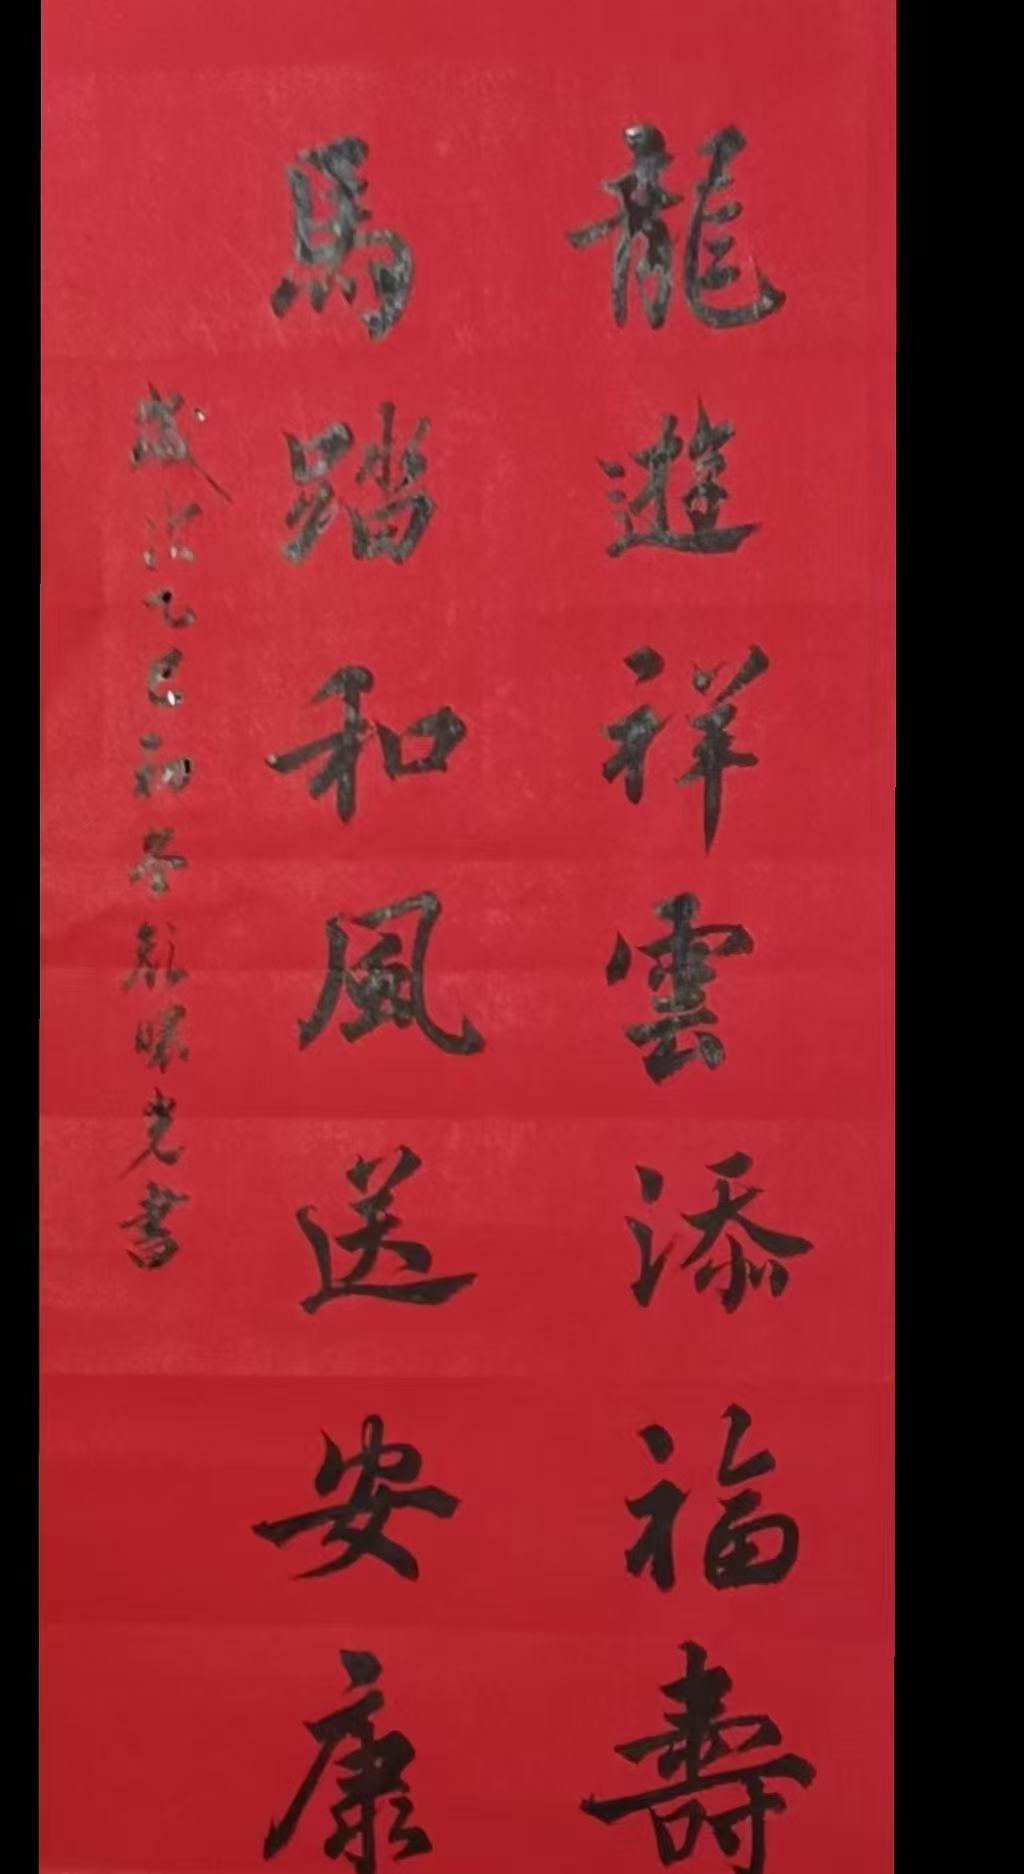 龍遊祥雲添福壽
馬踏和風送安康
歲次乙巳初冬 光書